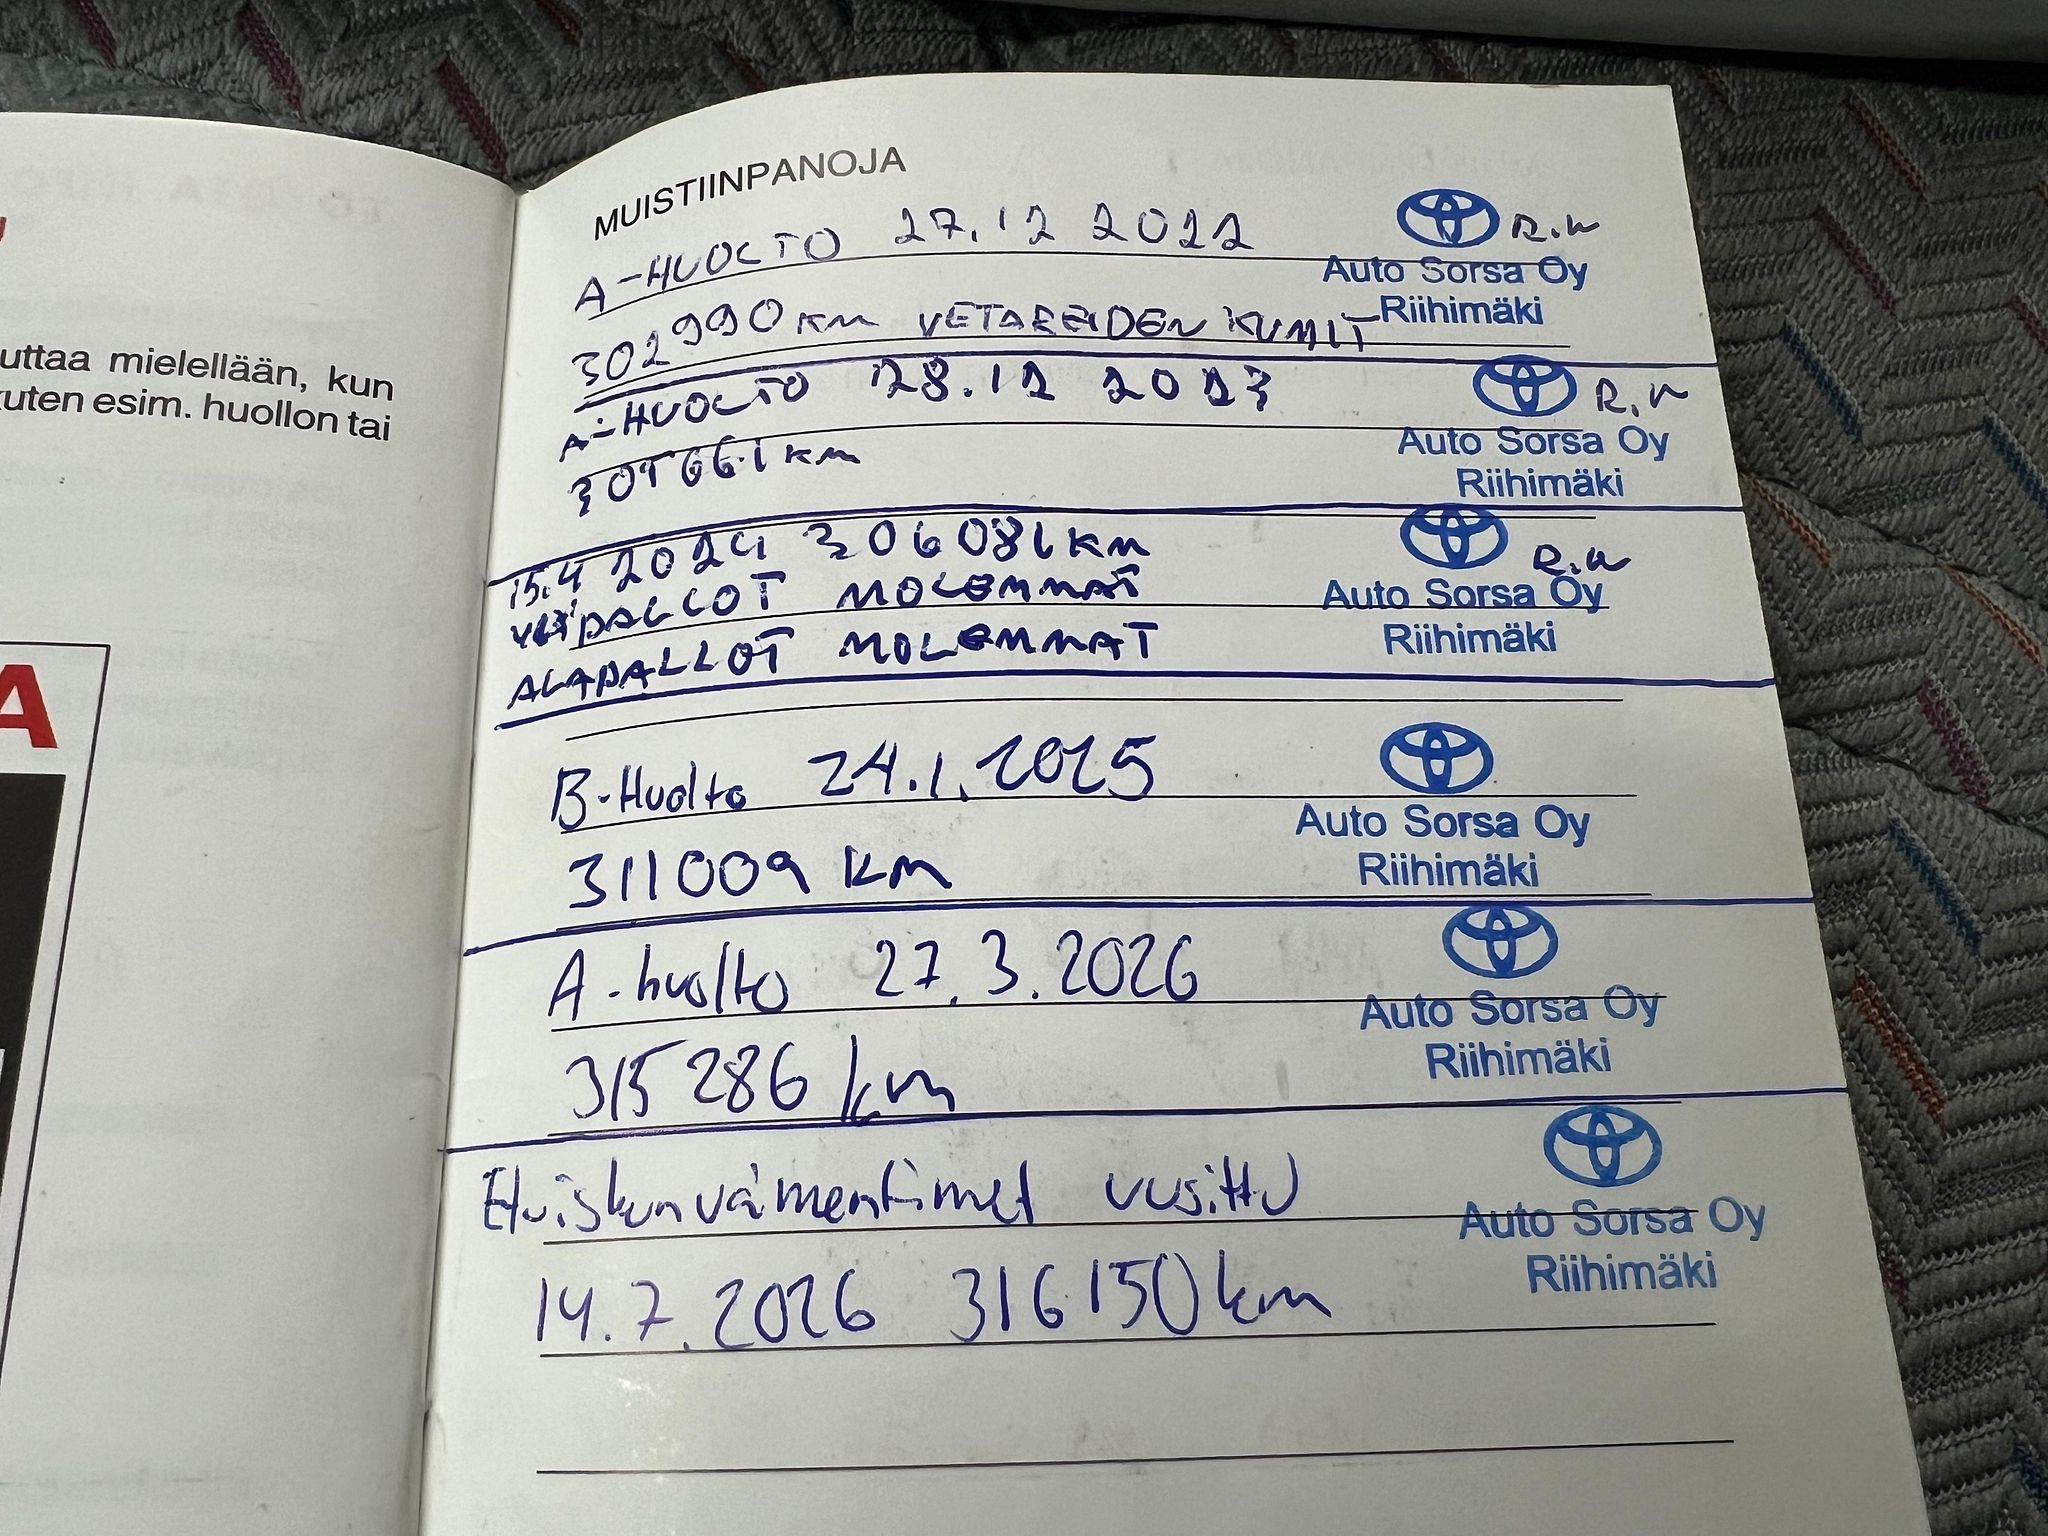 uttaa mielellään, kun
kuten esim. huollon tai
A
MUISTIINPANOJA
A-HUOLTO 27.12 2022
R.W
Auto Sorsa Oy
Riihimäki
302990 KM VETAREIDEN KUMIT
A-HUOLTO 28.12 2023
R.W
Auto Sorsa Oy
Riihimäki
KM
15.4 2024 306081 KM
R.W
Auto Sorsa Oy
Riihimäki
YLÄPALLOT MOLEMMAT
ALAPALLOT MOLEMMAT
B-Huolto 24.1.2025
Auto Sorsa Oy
Riihimäki
311009 KM
A-huolto 27.3.2026
Auto Sorsa Oy
Riihimäki
315286 km
Etuiskunvaimentimet uusittu
Auto Sorsa Oy
Riihimäki
14.7.2026 316150 km